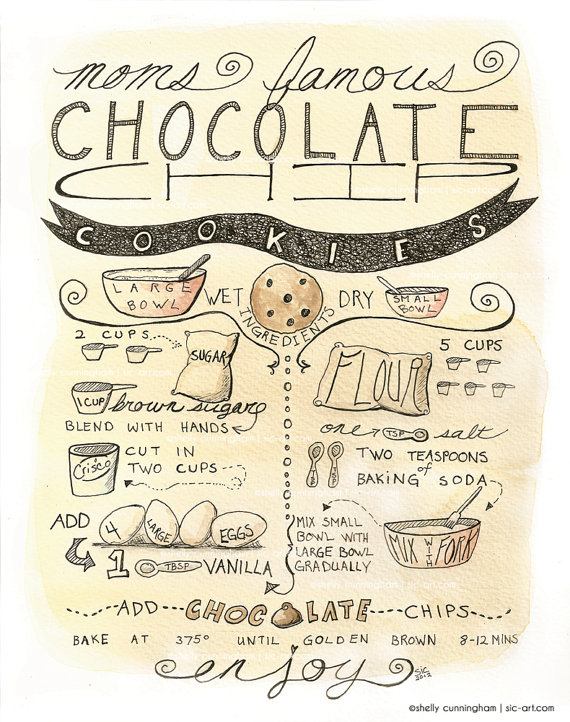 moms famous
CHOCOLATE
CHIP
COOKIES
LARGE
BOWL
WET
INGREDIENTS
DRY
SMALL
BOWL
2 CUPS
SUGAR
1 CUP
brown sugar
BLEND WITH HANDS
Crisco
CUT IN
TWO CUPS
ADD
4 LARGE EGGS
1 TBSP VANILLA
FLOUR
5 CUPS
one TSP salt
TWO TEASPOONS
of
BAKING SODA
MIX SMALL
BOWL WITH
LARGE BOWL
GRADUALLY
MIX WITH FORK
ADD CHOCOLATE CHIPS
BAKE AT 375° UNTIL GOLDEN BROWN 8-12 MINS
enjoy
SIC
2012
©shelly cunningham | sic-art.com